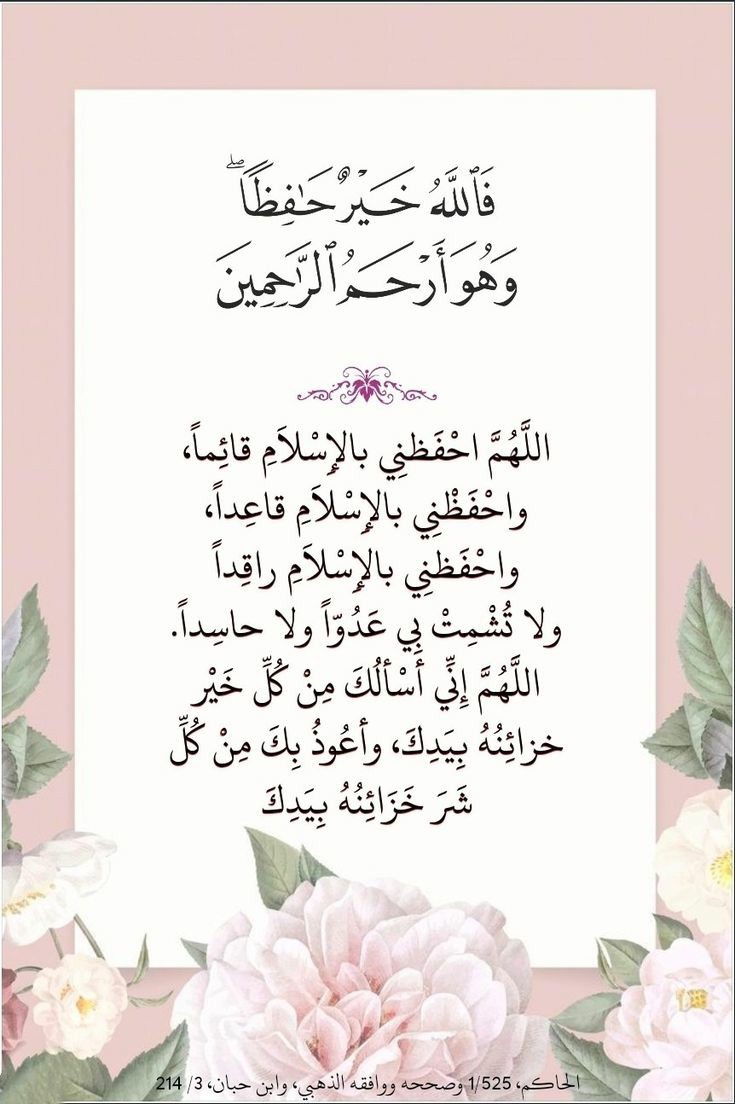 فَٱللَّهُ خَيْرٌ حَـٰفِظًا ۖ
وَهُوَ أَرْحَمُ ٱلرَّٰحِمِينَ
اللَّهُمَّ احْفَظنِي بالإِسْلاَمِ قائِماً،
واحْفَظْنِي بالإِسْلاَمِ قاعِداً،
واحْفَظنِي بالإِسْلاَمِ راقِداً
ولا تُشْمِتْ بِي عَدُوّاً ولا حاسِداً.
اللَّهُمَّ إِنِّي أسْألُكَ مِنْ كُلِّ خَيْر
خزائِنُهُ بِيَدِكَ، وأعُوذُ بِكَ مِنْ كُلِّ
شَرَ خَزَائِنُهُ بِيَدِكَ
الحاكم، 1/525 وصححه ووافقه الذهبي، وابن حبان، 3/ 214